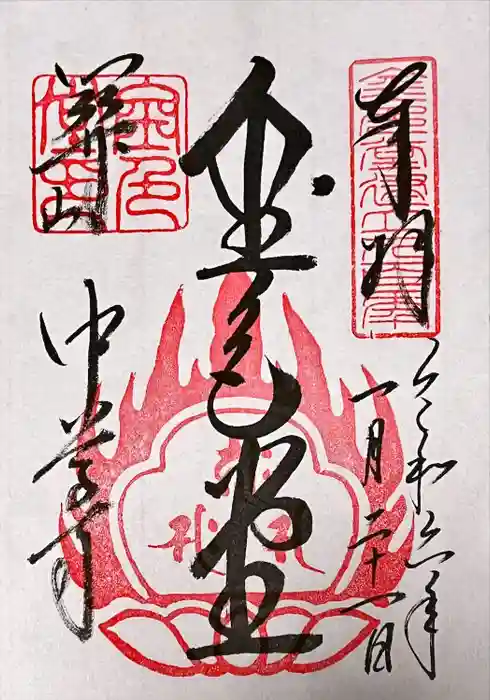 奉拝
令和六年
一月二十一日
金色堂
関山
中尊寺